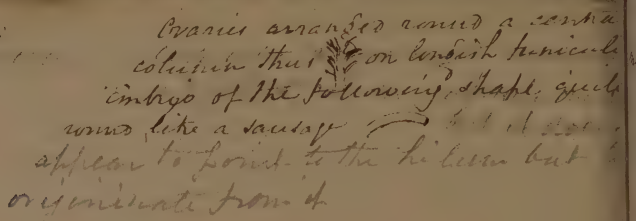 Ovaries arranged round a centra
column thus on longish funicule
embryo of the following shape, quite
round like a sausage
appear to point to the hilum but
originate from it